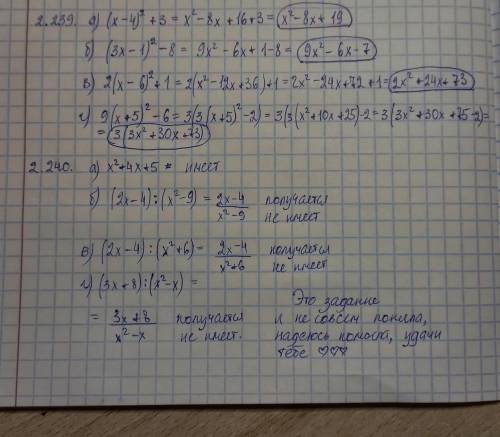 2.239. а) (x-4)² + 3 = x² - 8x + 16 + 3 = x² - 8x + 19
б) (3x - 1)² - 8 = 9x² - 6x + 1 - 8 = 9x² - 6x - 7
в) 2(x - 6)² + 1 = 2(x² - 12x + 36) + 1 = 2x² - 24x + 72 + 1 = 2x² + 24x + 73
г) 9(x+5)² - 6 = 3(3(x+5)² - 2) = 3(3(x² + 10x + 25) - 2 = 3(3x² + 30x + 75 - 2) =
= 3(3x² + 30x + 73)
2.240. а) x² + 4x + 5 = имеет
б) (2x - 4) : (x² - 9) = (2x - 4)/(x² - 9) получается не имеет
в) (2x - 4) : (x² + 6) = (2x - 4)/(x² + 6) получается не имеет
г) (3x + 8) : (x² - x) =
= (3x + 8)/(x² - x) получается не имеет.
Это задание
я не совсем поняла,
надеюсь помогла, удачи
тебе ♡♡♡